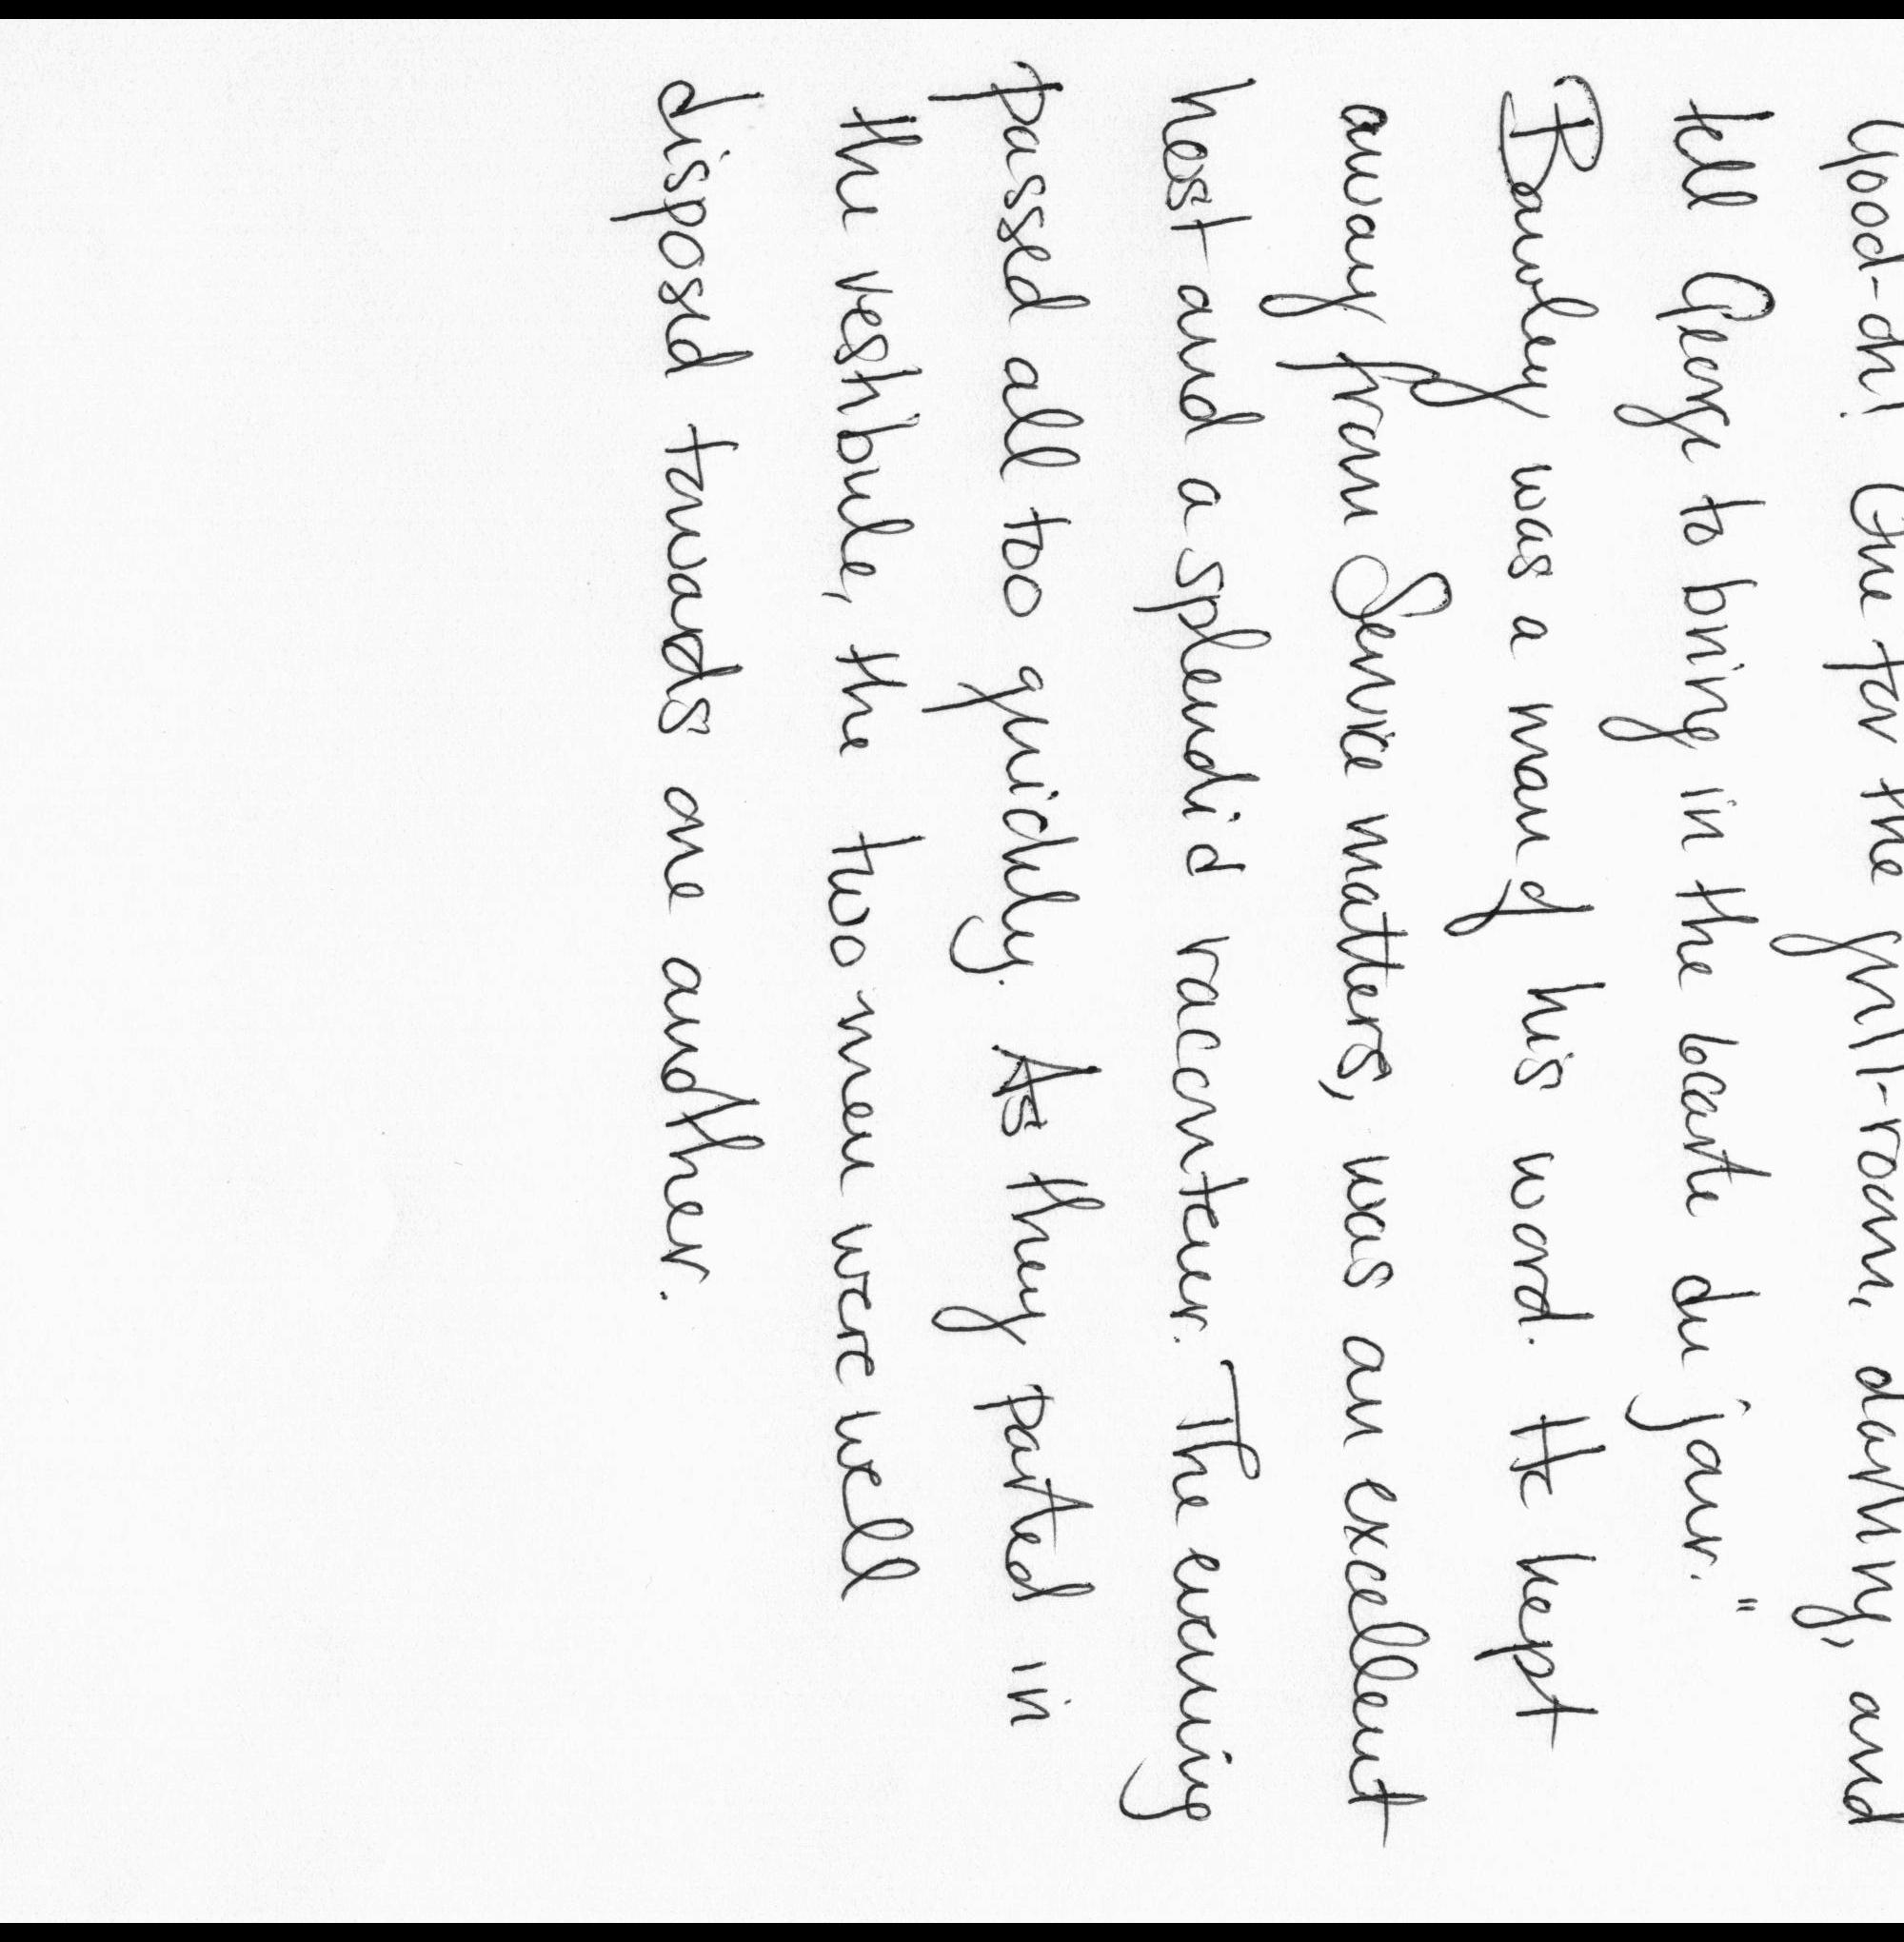 Good-oh! One for the grill-room, darling, and
tell George to bring in the bcarte du jour."
Bawley was a man of his word. He kept
away from Service matters, was an excellent
host and a splendid raconteur. The evening
passed all too quickly. As they parted in
the vestibule, the two men were well
disposed towards one another.